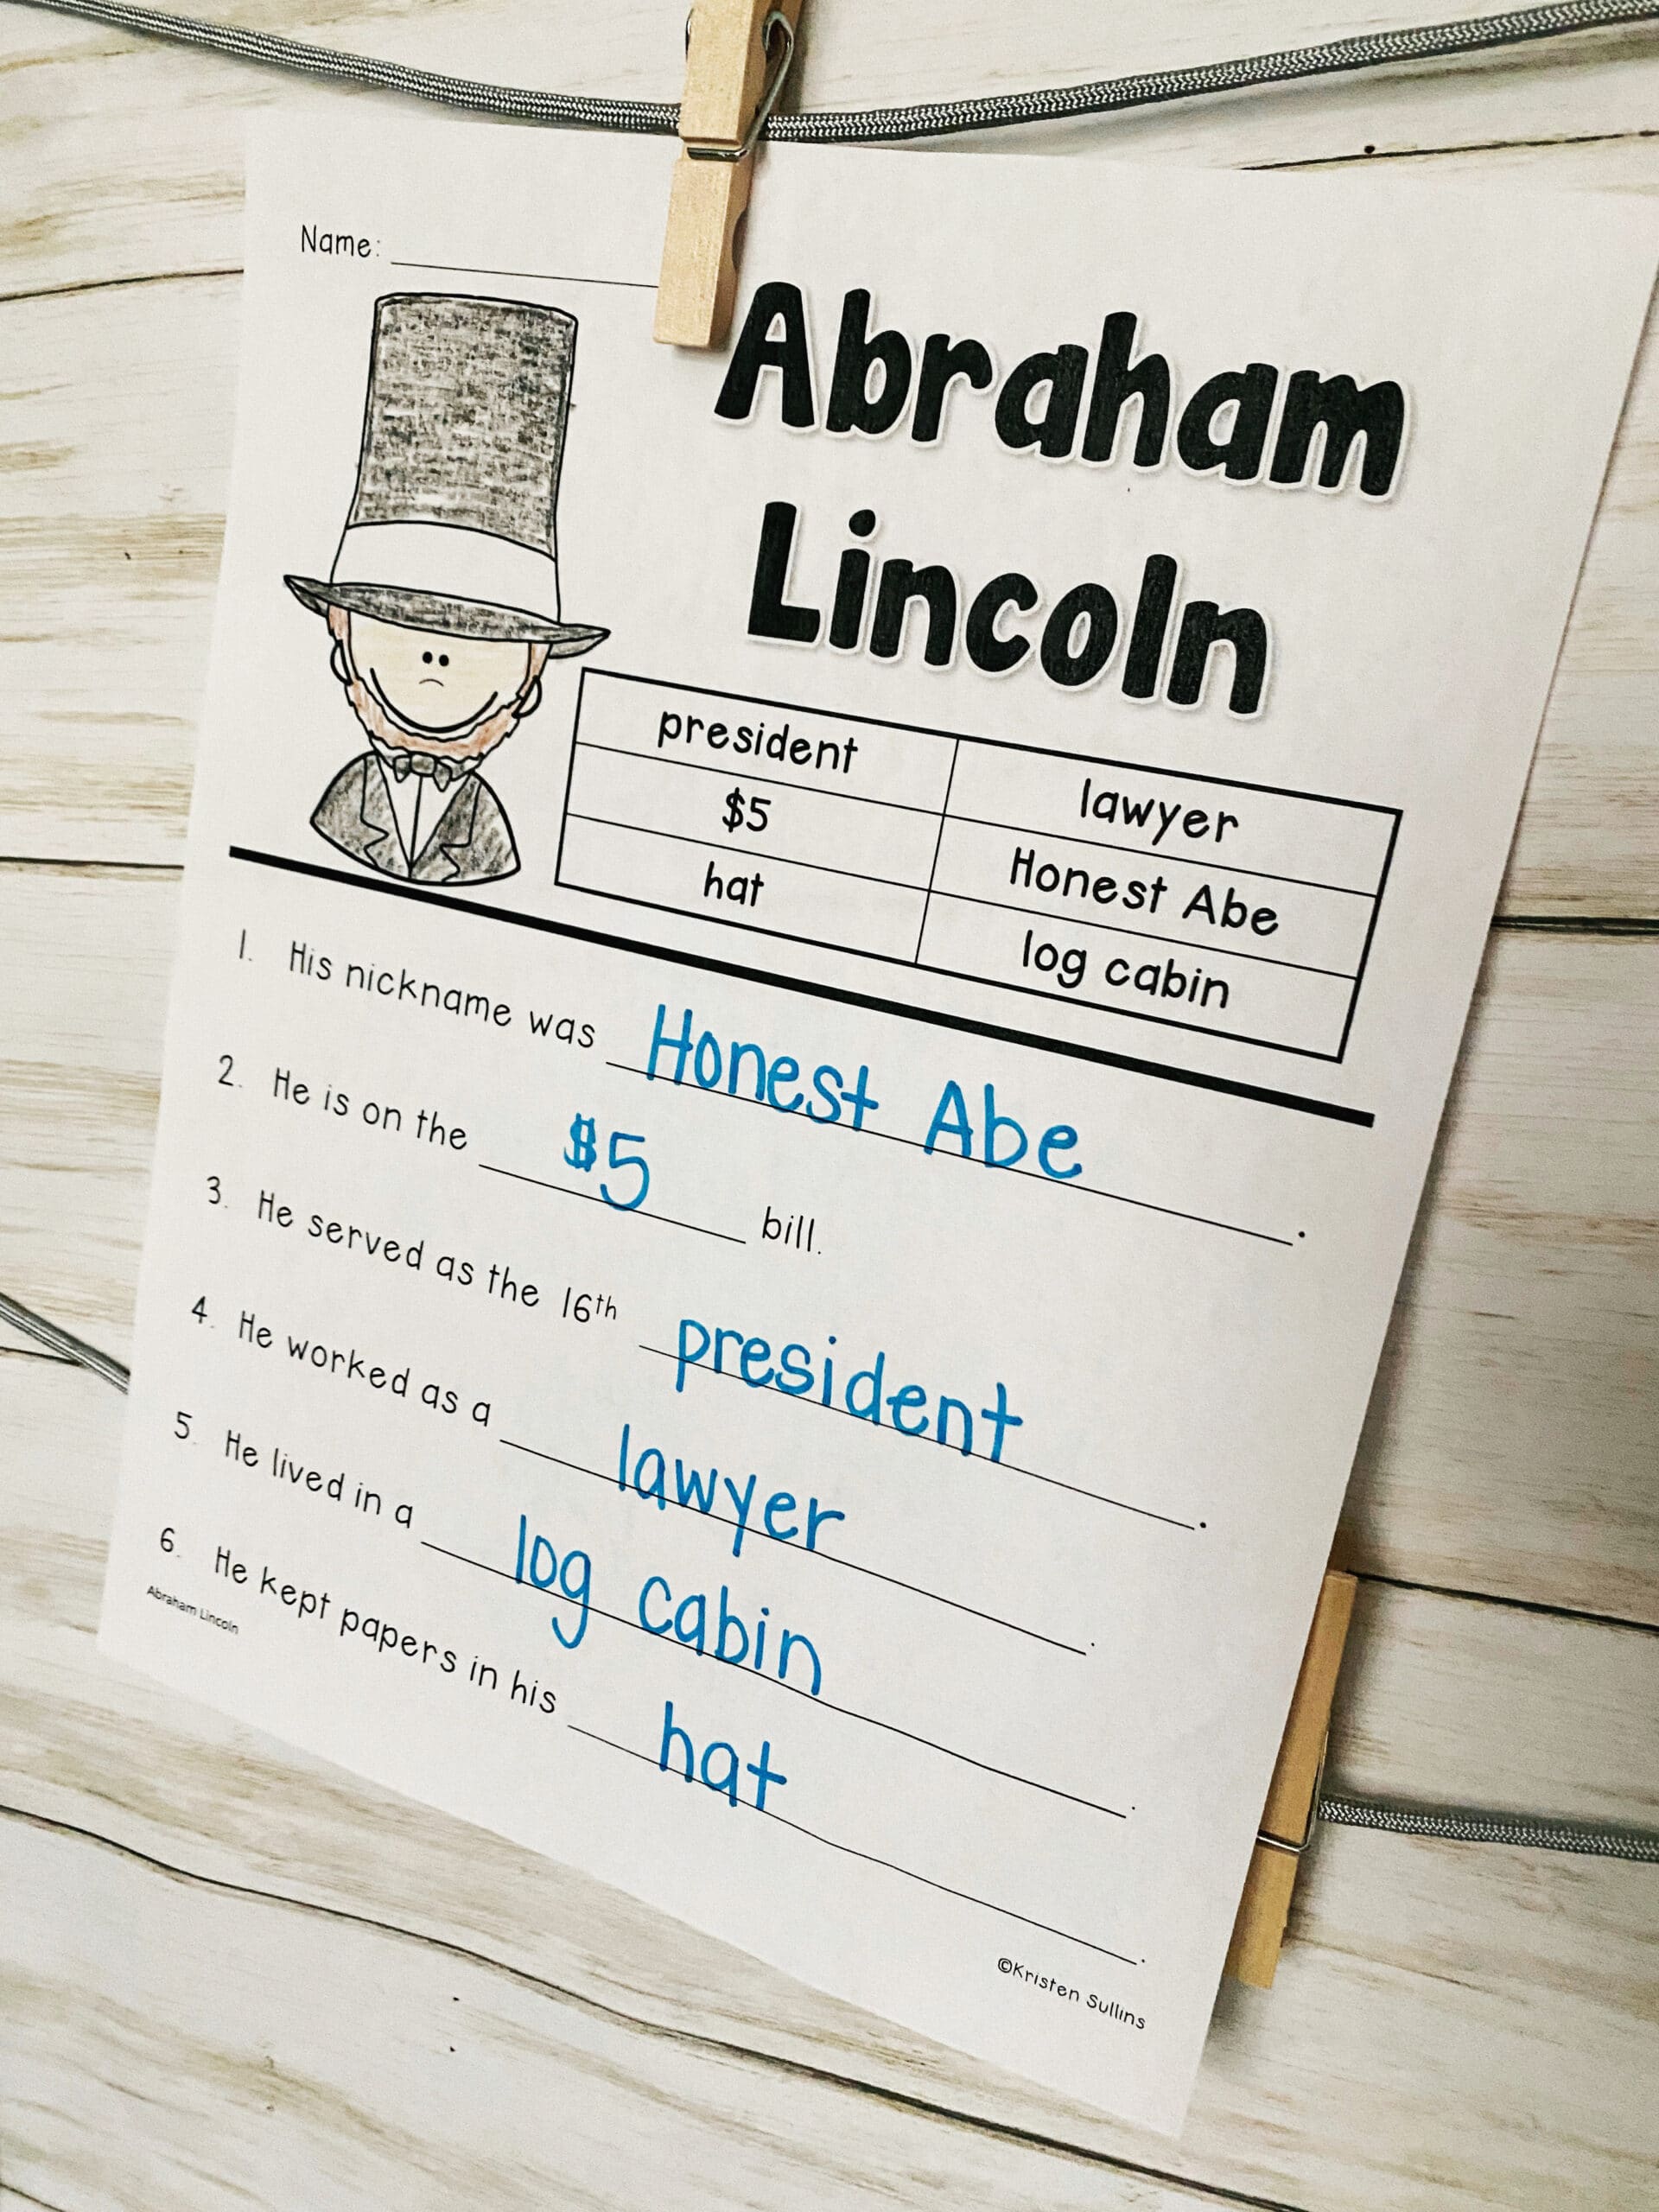 Name:
Abraham
Lincoln
president lawyer
$5 Honest Abe
hat log cabin
1. His nickname was Honest Abe.
2. He is on the $5 bill.
3. He served as the 16th president.
4. He worked as a lawyer.
5. He lived in a log cabin.
6. He kept papers in his hat.
Abraham Lincoln
©Kristen Sullins